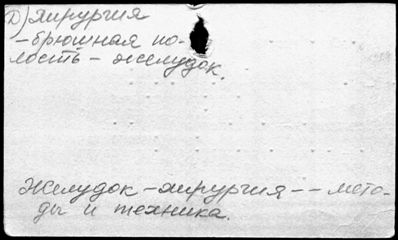 Д) хирургия
- брюшная по-
лость - желудок.
Желудок - хирургия -- мето-
ды и техника.